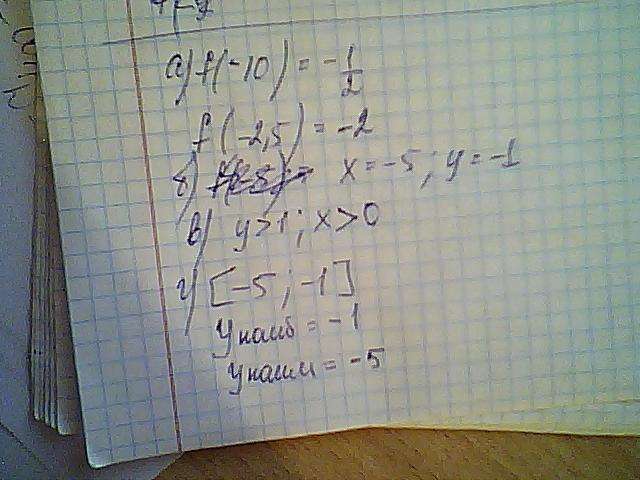 а) f(-10) = -1/2
f(-2,5) = -2
б) x = -5; y = -1
в) y>1; x>0
г) [-5; -1]
yнаиб = -1
yнаим = -5